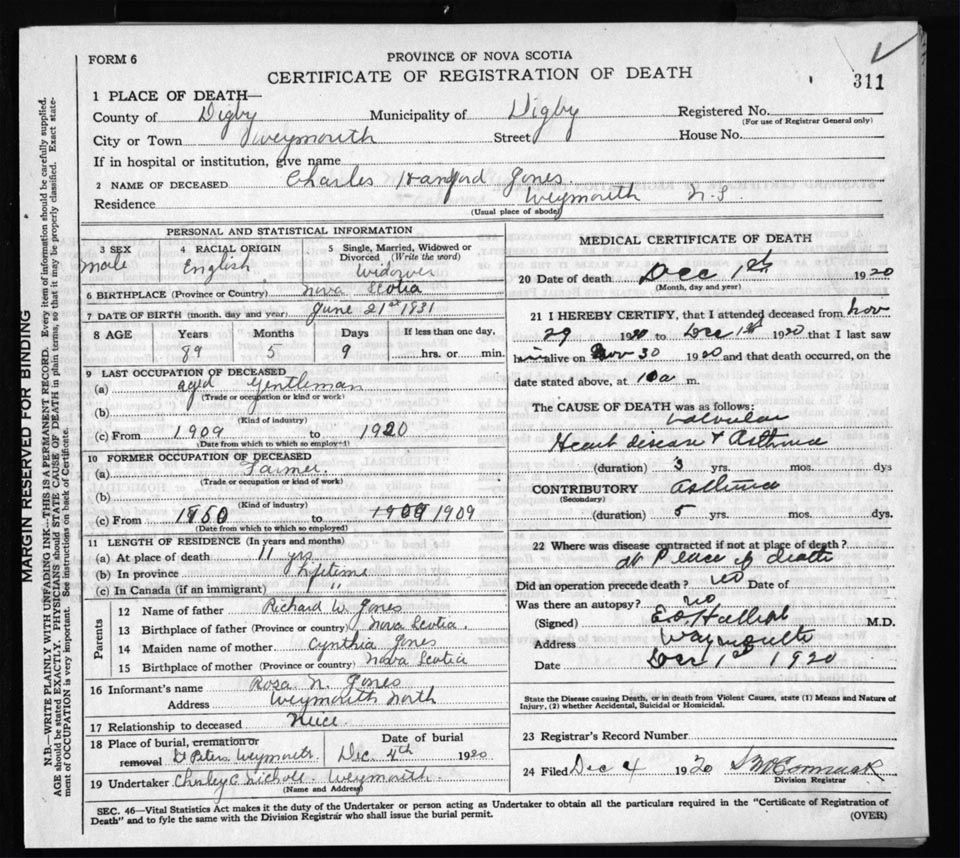 FORM 6
PROVINCE OF NOVA SCOTIA
CERTIFICATE OF REGISTRATION OF DEATH
311
1 PLACE OF DEATH—
County of Digby Municipality of Digby Registered No.
(For use of Registrar General only)
City or Town Weymouth Street House No.
If in hospital or institution, give name
2 NAME OF DECEASED Charles Hanford Jones
Residence Weymouth N.S.
(Usual place of abode)
PERSONAL AND STATISTICAL INFORMATION
3 SEX 4 RACIAL ORIGIN 5 Single, Married, Widowed or Divorced (Write the word)
male English Widower
6 BIRTHPLACE (Province or Country) Nova Scotia
7 DATE OF BIRTH (month, day and year) June 21st 1831
8 AGE Years Months Days If less than one day,
89 5 9 hrs. or min.
9 LAST OCCUPATION OF DECEASED
(a) aged Gentleman
(Trade or occupation or kind of work)
(b)
(Kind of industry)
(c) From 1909 to 1920
(Date from which to which so employed)
10 FORMER OCCUPATION OF DECEASED
(a) Farmer
(Trade or occupation or kind of work)
(b)
(Kind of industry)
(c) From 1850 to 1909 1909
(Date from which to which so employed)
11 LENGTH OF RESIDENCE (In years and months)
(a) At place of death 11 yrs
(b) In province lifetime
(c) In Canada (if an immigrant) "
Parents
12 Name of father Richard W. Jones
13 Birthplace of father (Province or country) Nova Scotia.
14 Maiden name of mother Cynthia Jones
15 Birthplace of mother (Province or country) Nova Scotia
16 Informant's name Rosa N. Jones
Address Weymouth North
17 Relationship to deceased Niece
18 Place of burial, cremation or removal St Peters Weymouth Date of burial Dec. 4th 1920
19 Undertaker Charley C. Nichols. Weymouth.
(Name and Address)
MEDICAL CERTIFICATE OF DEATH
20 Date of death Dec 1st 1920
(Month, day and year)
21 I HEREBY CERTIFY, that I attended deceased from Nov
29 1920 to Dec 1st 1920 that I last saw
him alive on Nov 30 1920 and that death occurred, on the
date stated above, at 10 a m.
The CAUSE OF DEATH was as follows:
valvular
Heart disease & Asthma
(duration) 3 yrs. mos. dys
CONTRIBUTORY Asthma
(Secondary)
(duration) 5 yrs. mos. dys.
22 Where was disease contracted if not at place of death?
at Place of death
Did an operation precede death? no Date of
Was there an autopsy? no
(Signed) M.D.
Address Weymouth
Date Dec 1st 1920
State the Disease causing Death, or in death from Violent Causes, state (1) Means and Nature of
Injury, (2) whether Accidental, Suicidal or Homicidal.
23 Registrar's Record Number
24 Filed Dec 4 1920
Division Registrar
SEC. 46—Vital Statistics Act makes it the duty of the Undertaker or person acting as Undertaker to obtain all the particulars required in the "Certificate of Registration of
Death" and to fyle the same with the Division Registrar who shall issue the burial permit.
(OVER)
MARGIN RESERVED FOR BINDING
N.B.—WRITE PLAINLY WITH UNFADING INK—THIS IS A PERMANENT RECORD. Every item of information should be carefully supplied.
AGE should be stated EXACTLY. PHYSICIANS should STATE CAUSE OF DEATH in plain terms, so that it may be properly classified. Exact state-
ment of OCCUPATION is very important. See instructions on back of Certificate.